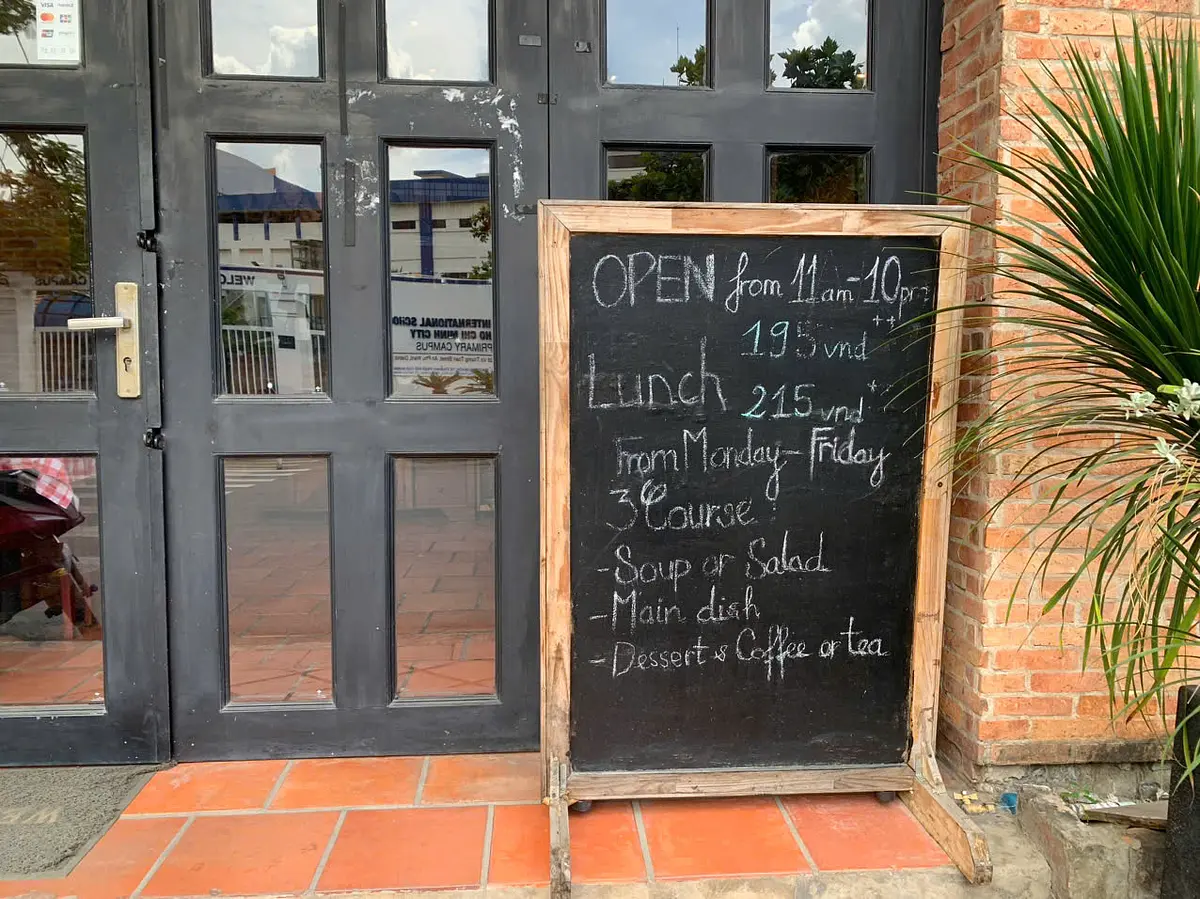 OPEN from 11am-10pm
195 vnd ++
Lunch
215 vnd +
From Monday-Friday
3 Course
-Soup or Salad
-Main dish
-Dessert & Coffee or tea
WELC
INTERNATIONAL SCHO
HO CHI MINH CITY
PRIMARY CAMPUS